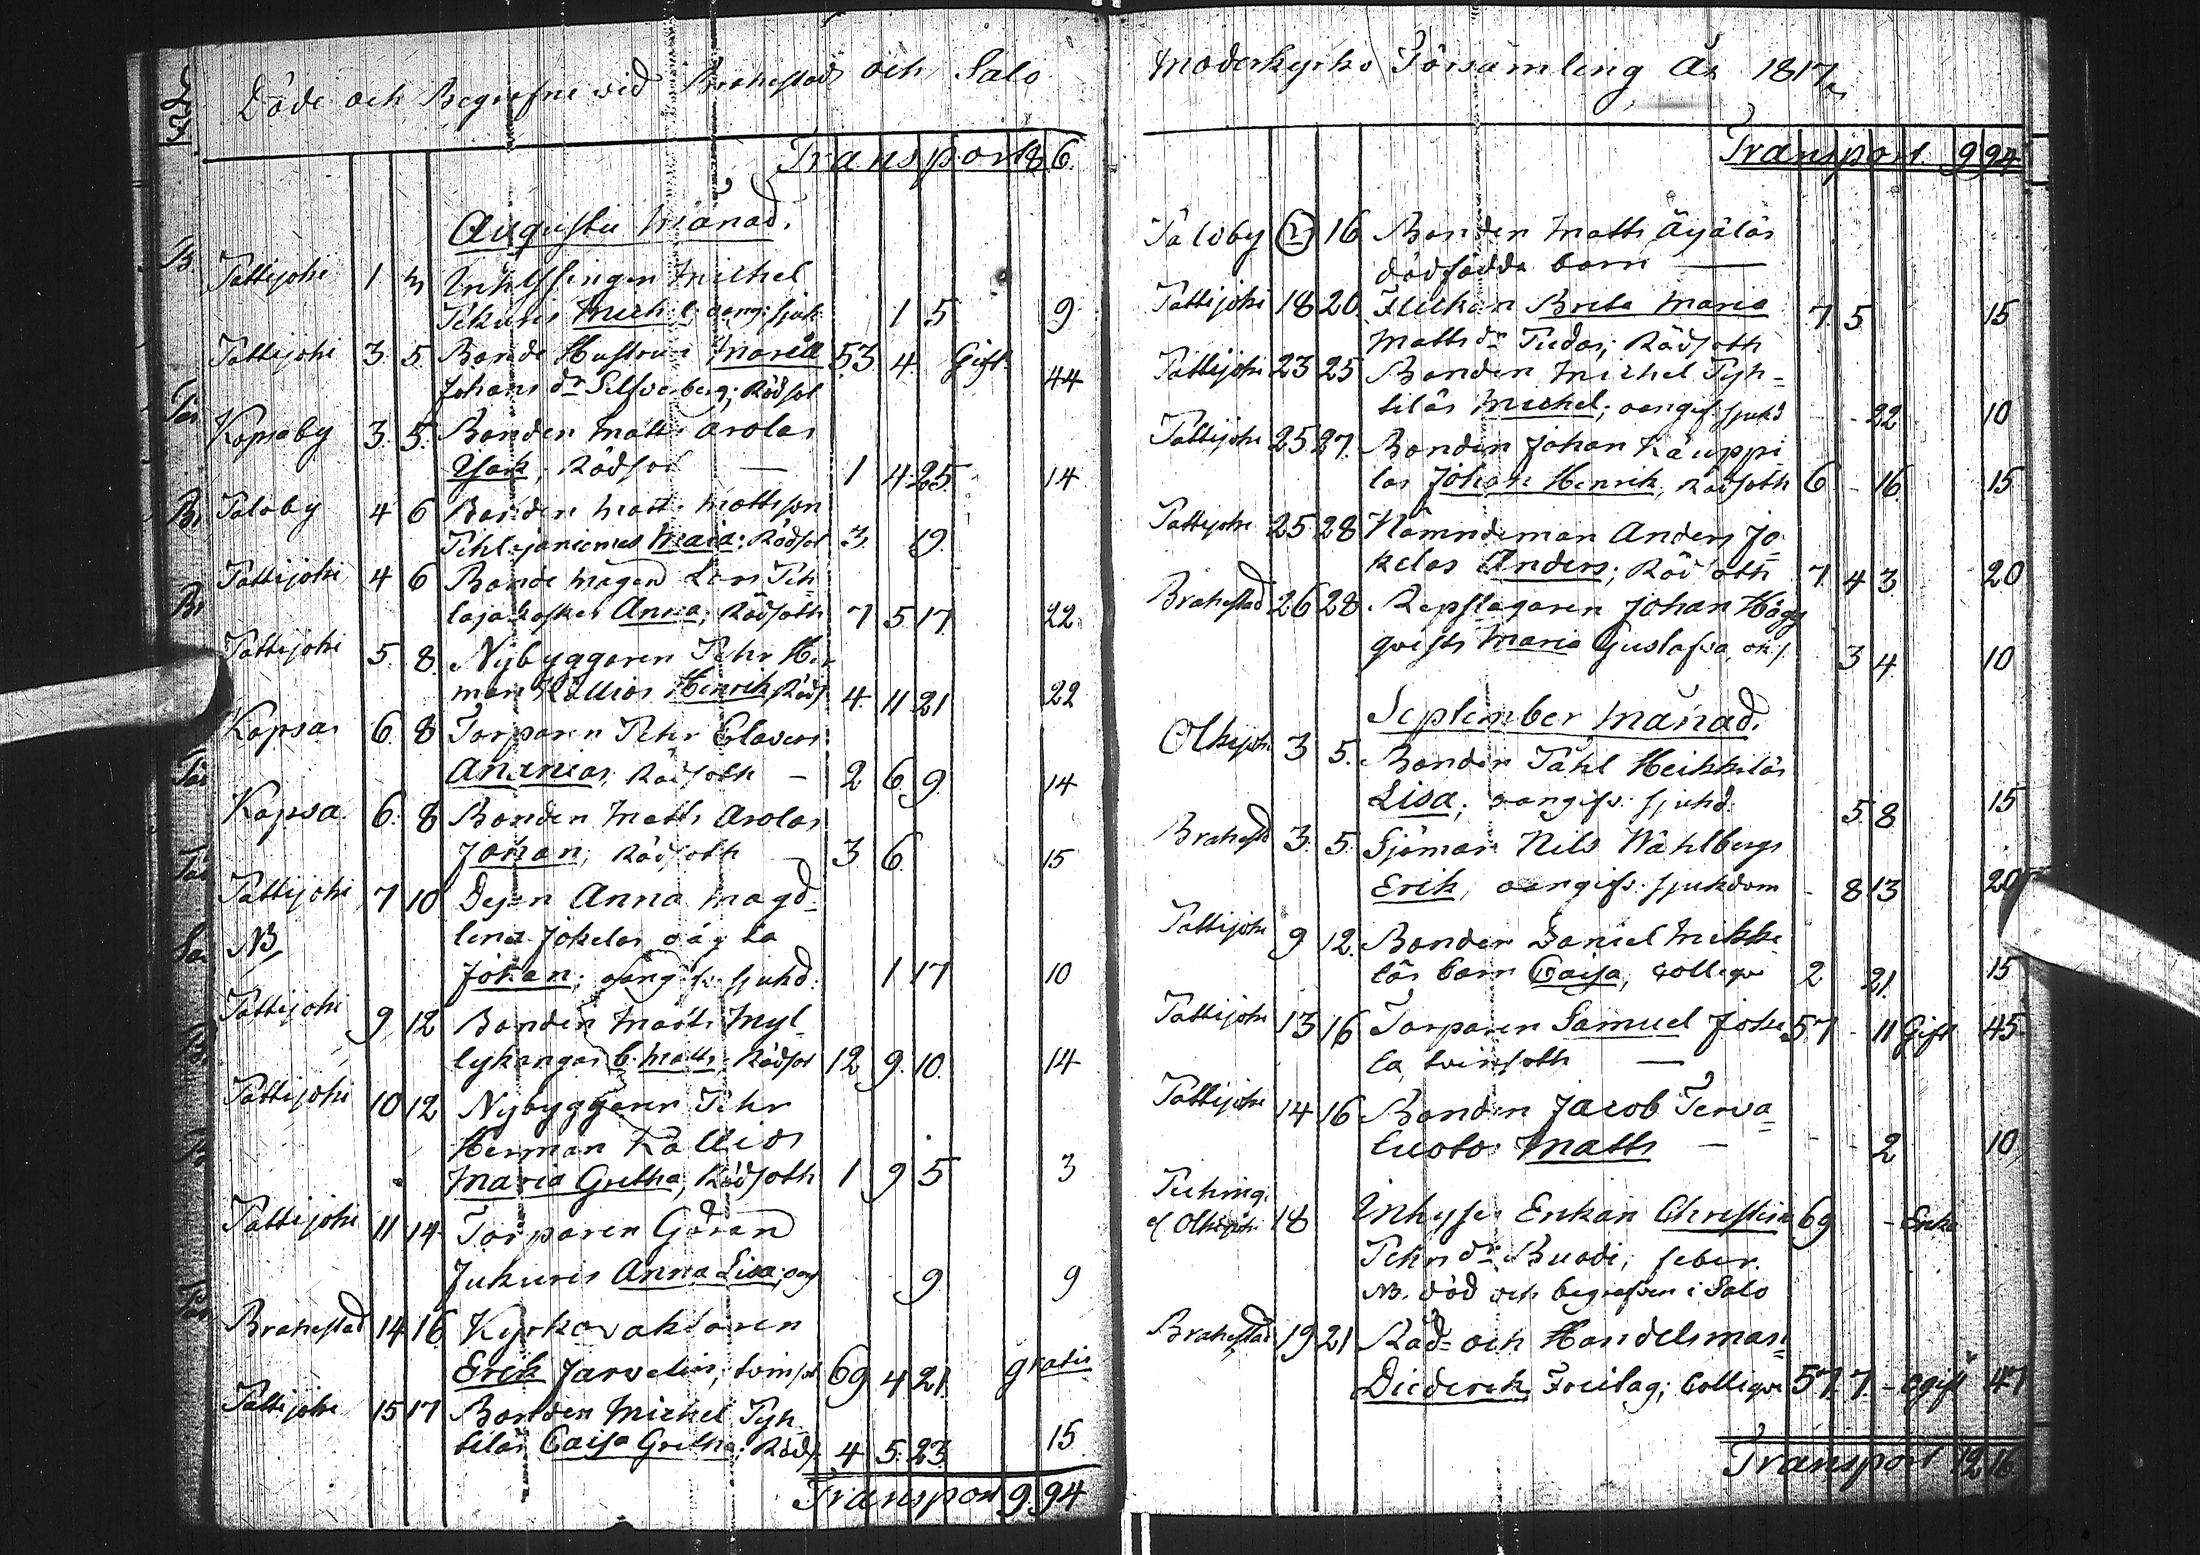 Döde och Begrafne vid Brahestad och Salo
Transport 8 6.
Augusti Månad.
Pattijoki 1 3 Inhysingen Michel
Pekuris Mich:l; oang: sjuk 1 5 9
Pattijoki 3. 5. Bonde Hustrun Maria 53 4. Gift. 44
Johans dr Silfverberg; Rödsot
Kopsaby 3. 5. Bonden Matts Arolas
Isak, Rödsot — 1 4 25. 14
Saloby 4 6 Bonden Matts Mattsson
Pehljaniemes Maria; Rödsot 3. 19.
Pattijoki 4 6 Bonde mågen Lars Peh
lajakoskes Anna; Rödsoth 7 5 17. 22.
Pattijoki 5. 8. Nybyggaren Pehr Her
man Kallios Henrik, Röds 4. 11 21 22
Kopsa 6. 8 Torparen Pehr Clavers
Ananias, Rödsoth — 2 6 9 14
Kopsa. 6. 8 Bonden Matts Arolas
Johan; Rödsoth — 3 6. 15
Pattijoki 7 10 Dejan Anna Magd-
NB. lena Jokelas oägta
Johan; oangifv: sjukd: 1 17 10
Pattijoki 9 12 Bonden Matts Myl-
lykangas b. Matts Rödsot 12 9. 10. 14
Pattijoki 10 12 Nybyggaren Pehr
Herman Kallios
Maria Gretha, Rödsoth 1 9 5 3
Pattijoki 11 14 Torparen Göran
Jukuris Anna Lisa; oang 9. 9
Brahestad 14 16. Kyrkovaktaren
Erik Jarvelin; tvinsot 69 4 21. gratis
Pattijoki 15 17 Bonden Michel Tyh
tilas Caisa Gretha; Röds. 4 5. 23. 15
Transport 9.94
Moderkyrko Församling År 1817.
Transport 9 94
Saloby 16 Bonden Matts Äijälas
dödfödda barn —
Pattijoki 18 20 Flickan Brita Maria 7. 5. 15
Matts dr Tudas; Rödsoth
Pattijoki 23 25 Bonden Michel Tyh=
tiläs Michel; oangif: sjukd - - 22 10
Pattijoki 25 27. Bonden Johan Kauppi
las Johan Henrik, Rödsoth 6 - 16 15
Pattijoki 25 28 Nämndeman Anders Jo=
kelas Anders; Rödsoth 7 4 3 20
Brahestad 26 28 Repslagaren Johan Hägg
qvists Maria Gustafva, 3 4. 10
September Månad.
Olkijoki 3 5. Bonden Påhl Heikkilas
Lisa; oangifv: sjukd. 5 8 15
Brahestad 3. 5. Sjöman Nils Wåhlbergs
Erik, oangifv: sjukdom - 8 13 20
Pattijoki 9 12. Bonden Daniel Mikke
läs barn Caisa, colliqve 2 21. 15
Pattijoki 13 16 Torparen Samuel Joke 57 - 11 Gift 45
la, tvinsoth —
Pattijoki 14 16 Bonden Jacob Terva=
luotos Matts — - - 2 10
af Olkijoki 18 Inhyses Enkan Christina 69 - Enka
Pehrs dr Buodi, feber.
NB. död och begrafven i Salo
Brahestad 19 21 Råd- och Handelsman
Diederich Freitag; Colliqve 57 7 - ogift 47
Transport 12 16